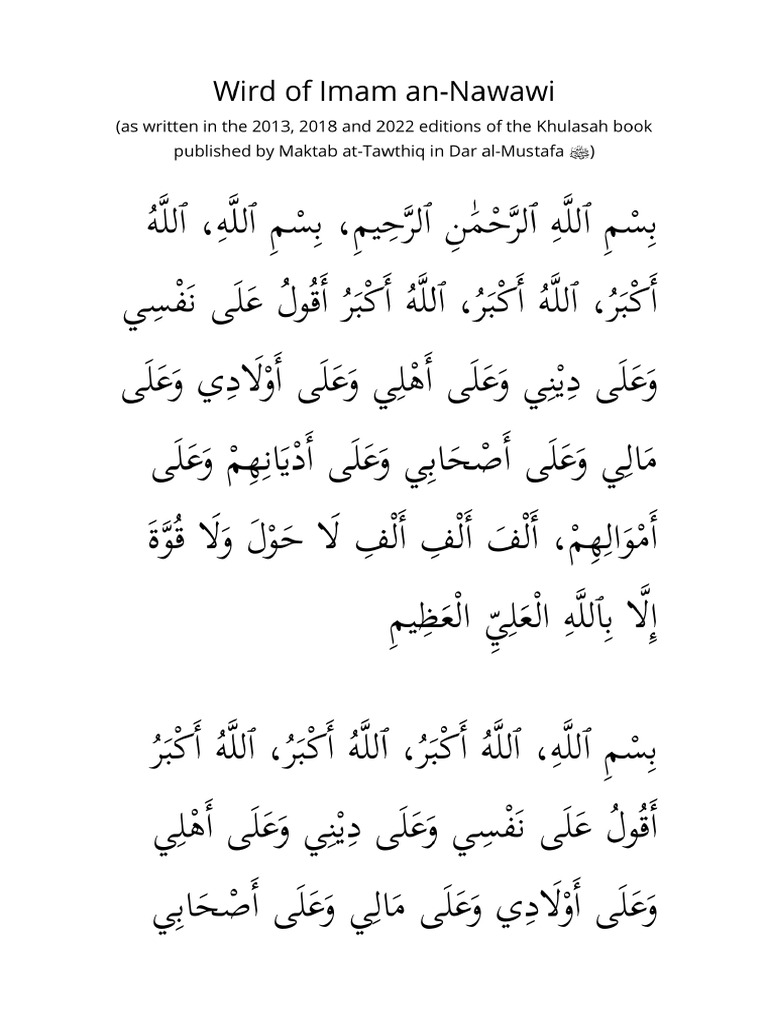 Wird of Imam an-Nawawi
(as written in the 2013, 2018 and 2022 editions of the Khulasah book
published by Maktab at-Tawthiq in Dar al-Mustafa ﷺ)
بِسْمِ ٱللَّهِ ٱلرَّحْمَٰنِ ٱلرَّحِيمِ، بِسْمِ ٱللَّهِ، ٱللَّهُ
أَكْبَرُ، ٱللَّهُ أَكْبَرُ، ٱللَّهُ أَكْبَرُ أَقُولُ عَلَى نَفْسِي
وَعَلَى دِيْنِي وَعَلَى أَهْلِي وَعَلَى أَوْلَادِي وَعَلَى
مَالِي وَعَلَى أَصْحَابِي وَعَلَى أَدْيَانِهِمْ وَعَلَى
أَمْوَالِهِمْ، أَلْفَ أَلْفِ أَلْفِ لَا حَوْلَ وَلَا قُوَّةَ
إِلَّا بِٱللَّهِ الْعَلِيِّ الْعَظِيمِ
بِسْمِ ٱللَّهِ، ٱللَّهُ أَكْبَرُ، ٱللَّهُ أَكْبَرُ، ٱللَّهُ أَكْبَرُ
أَقُولُ عَلَى نَفْسِي وَعَلَى دِيْنِي وَعَلَى أَهْلِي
وَعَلَى أَوْلَادِي وَعَلَى مَالِي وَعَلَى أَصْحَابِي